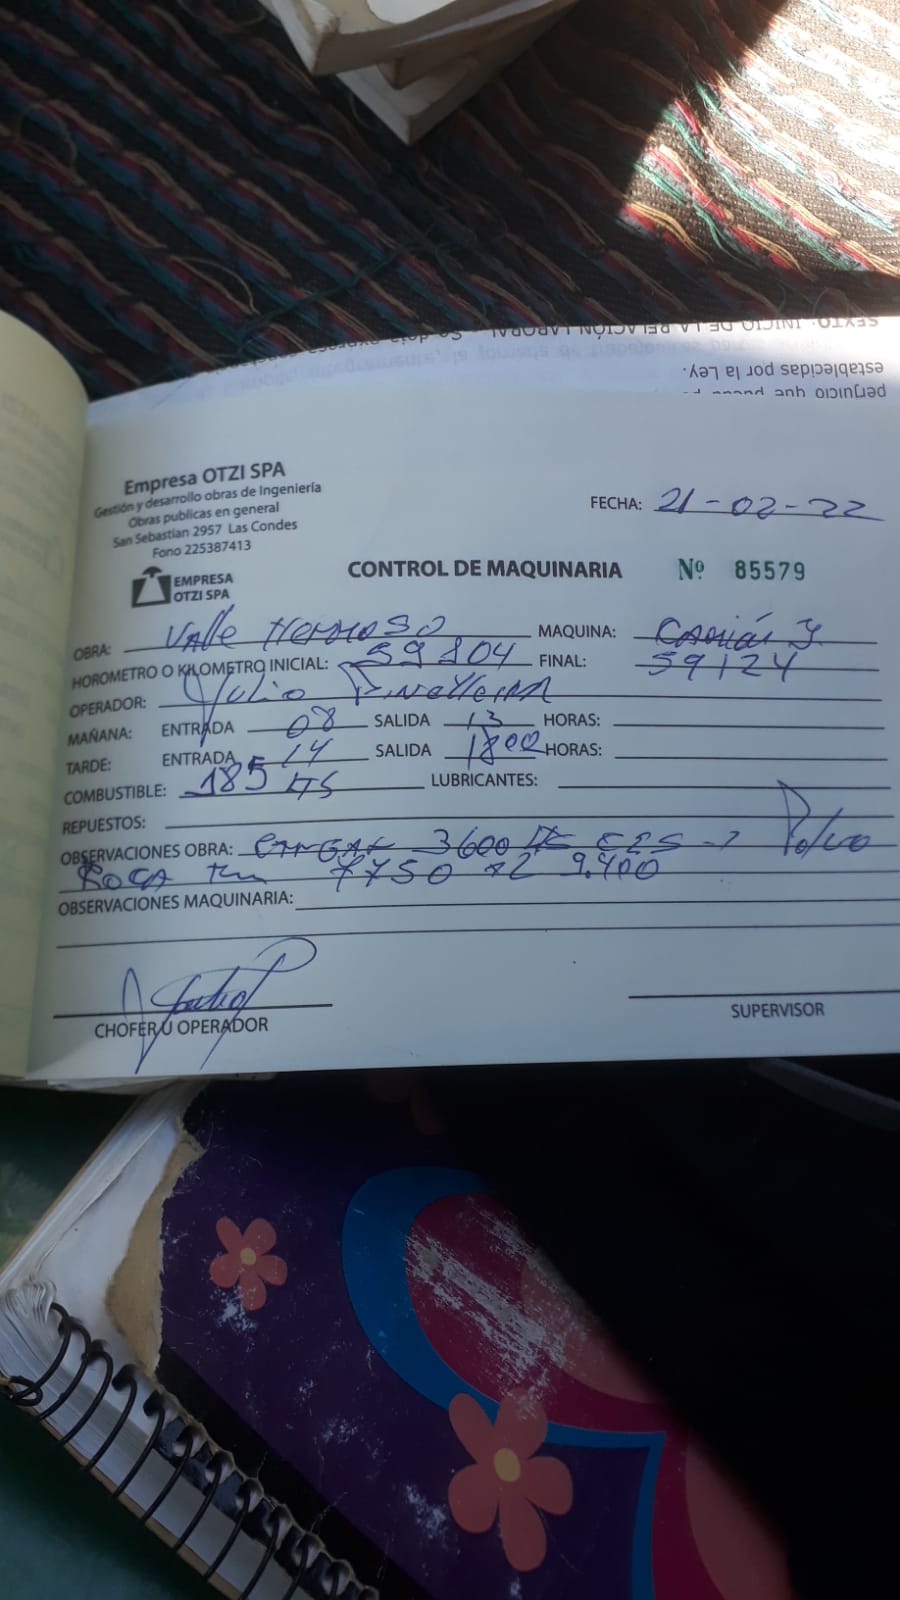 SEXTO: INICIO DE LA RELACIÓN LABORAL. Se deja
establecidas por la Ley.
perjuicio que
Empresa OTZI SPA
Gestión y desarrollo obras de Ingeniería
Obras publicas en general
San Sebastian 2957 Las Condes
Fono 225387413
EMPRESA
OTZI SPA
FECHA: 21-02-22
CONTROL DE MAQUINARIA Nº 85579
OBRA: Valle Hermoso MAQUINA: Camión
HOROMETRO O KILOMETRO INICIAL: 59104 FINAL: 59124
OPERADOR: Julio
MAÑANA: ENTRADA 08 SALIDA 13 HORAS:
TARDE: ENTRADA 14 SALIDA 1800 HORAS:
COMBUSTIBLE: 185 LTS LUBRICANTES:
REPUESTOS:
OBSERVACIONES OBRA: 3600 Polvo
ROCA Km 7750 9.400
OBSERVACIONES MAQUINARIA:
CHOFER U OPERADOR
SUPERVISOR